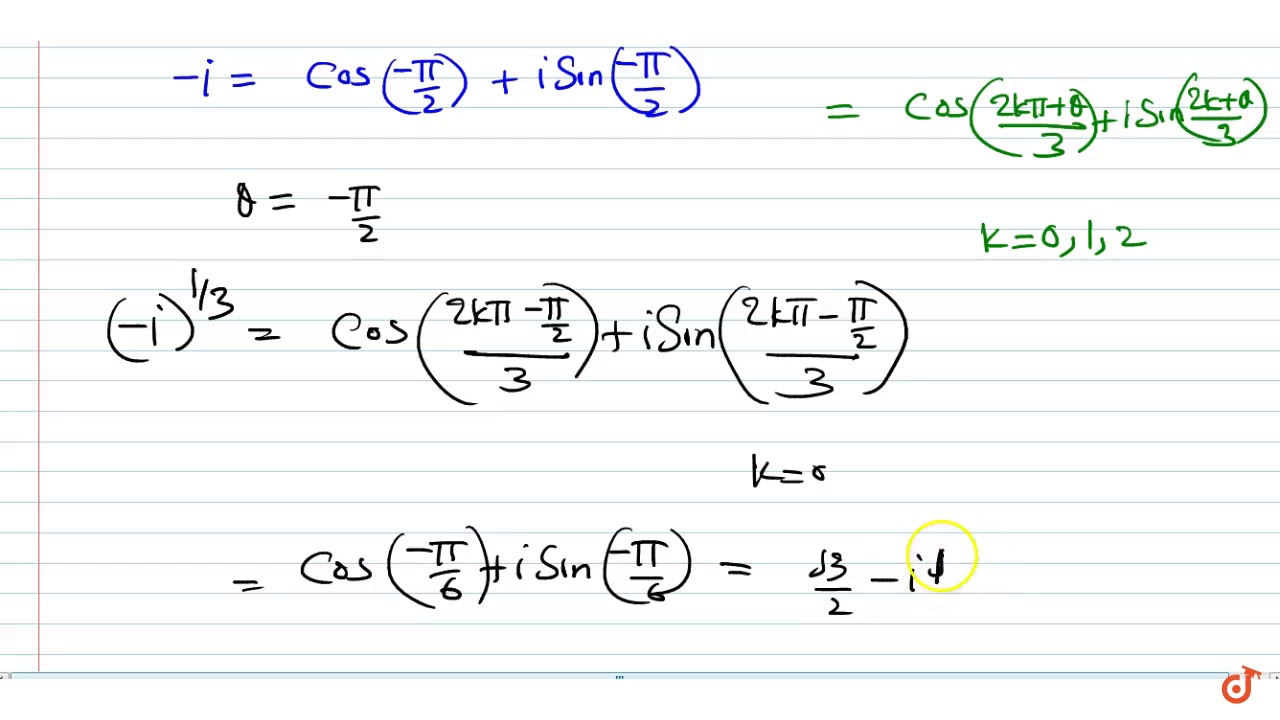 -i = Cos(-π/2) + i Sin(-π/2)
= Cos((2kπ+θ)/3) + i Sin((2k+θ)/3)
θ = -π/2
k=0,1,2
(-i)^1/3 = Cos((2kπ - π/2)/3) + i Sin((2kπ - π/2)/3)
k=0
= Cos(-π/6) + i Sin(-π/6) = √3/2 - i 1